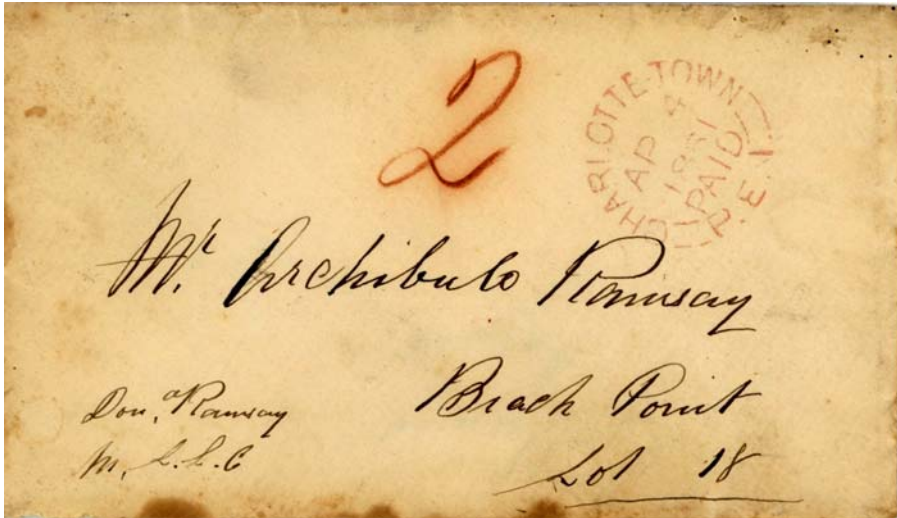 2
CHARLOTTE-TOWN
AP 4
1851
PAID
P.E.I.
Mr. Archibald Ramsay
Beach Point
Lot 18
Don.d Ramsay
M. L. C